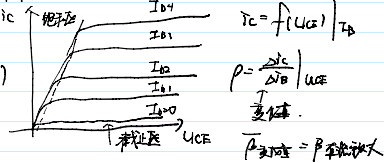 ic 饱和区 IB4
IB3
IB2
IB1
IB=0
截止区 UCE
)
ic = f(UCE)|IB
β = Δic/ΔiB | UCE
↑
变化率.